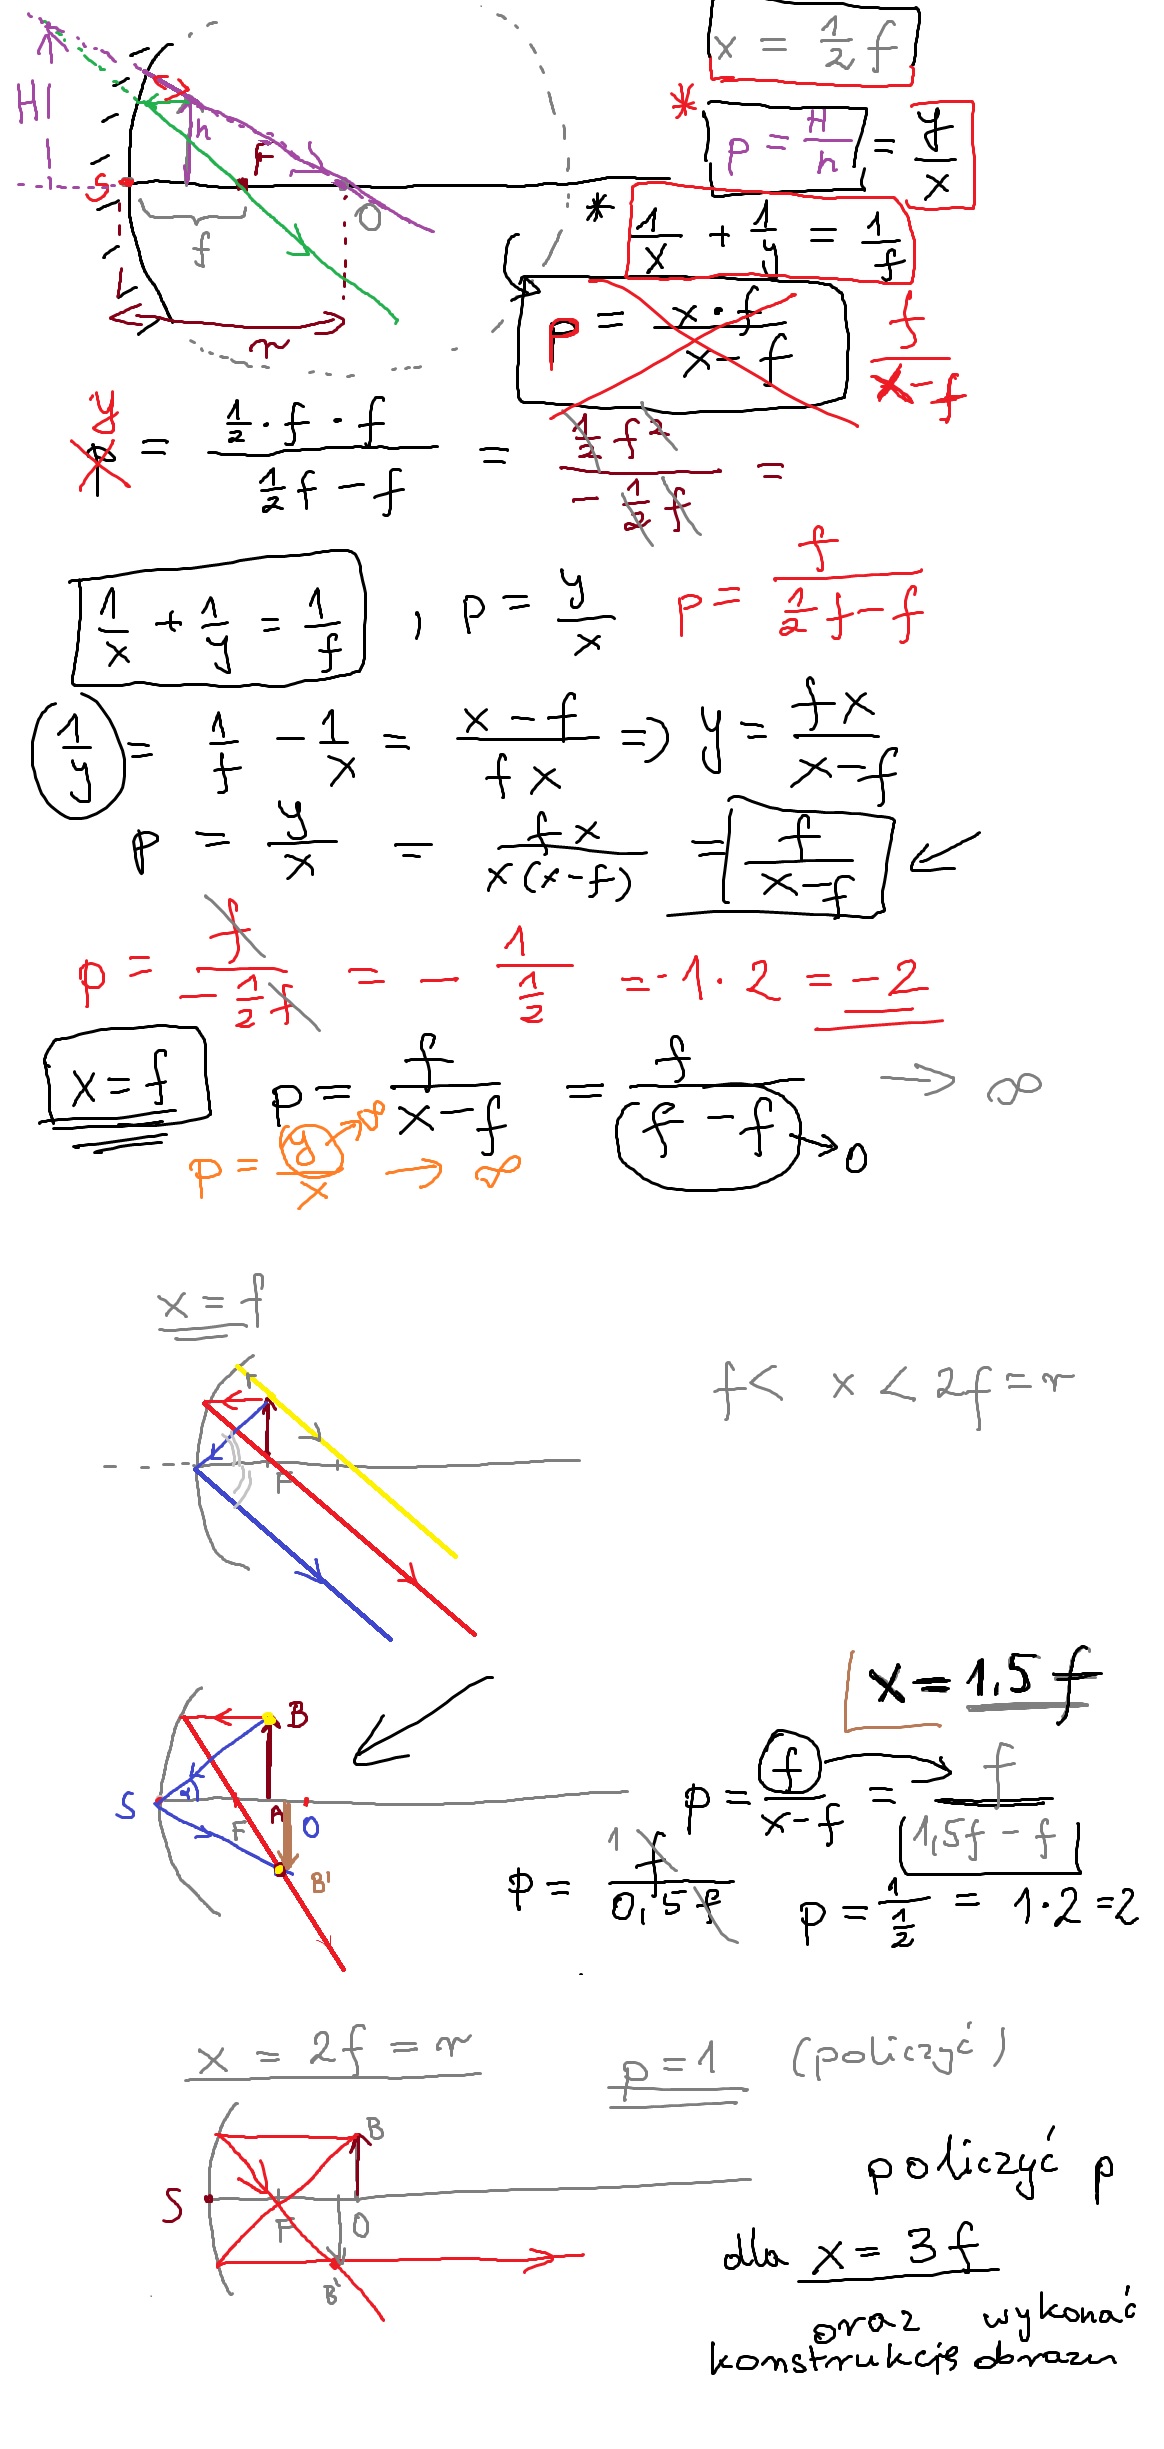 x = 1/2 f
H
h
F
S
O
f
r
* p = H/h = y/x
* 1/x + 1/y = 1/f
p = x·f / x-f
f / x-f
y
p = 1/2·f·f / 1/2 f - f = 1/2 f² / - 1/2 f =
1/x + 1/y = 1/f , p = y/x
p = f / 1/2 f - f
1/y = 1/f - 1/x = x-f / f x => y = f x / x-f
p = y/x = f x / x(x-f) = f / x-f
p = f / - 1/2 f = - 1 / 1/2 = -1·2 = -2
x = f
p = f / x-f = f / f-f → ∞
→ 0
p = y/x → ∞
→ ∞
x = f
F
f < x < 2f = r
x = 1,5 f
B
S
α
F
A
O
B'
p = f / x-f = f / 1,5f - f
p = 1 f / 0,5 f
p = 1 / 1/2 = 1·2 = 2
x = 2f = r
p = 1 (policzyć)
B
S
F
O
B'
policzyć p
dla x = 3f
oraz wykonać
konstrukcję obrazu